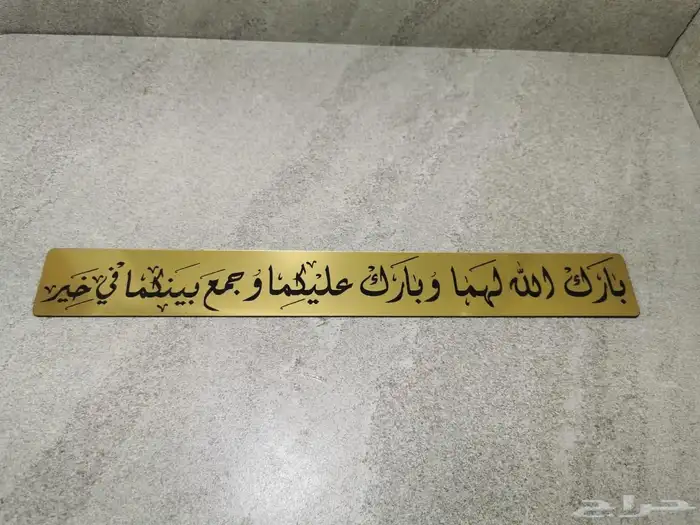 بارك الله لهما وبارك عليكما وجمع بينكما في خير
حراج